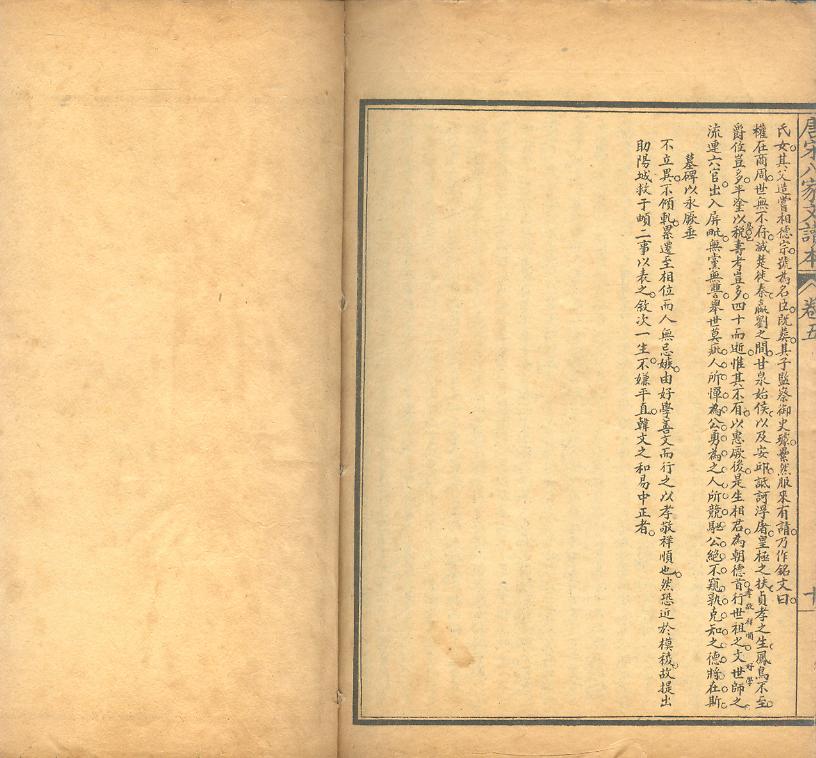 唐宋八家文讀本 卷五
氏女其父造嘗相德宗號為名臣既葬其子監察御史璩纍然服來有請乃作銘文曰
權在商周世無不存滅楚徙秦嬴劉之間甘泉始侯以及安邱詆訶浮屠皇極之扶貞孝之生鳳鳥不至
爵位豈多半塗以稅壽考豈多四十而逝惟其不有以惠厥後是生相君為朝德首行世祖之文世師之
流連六官出入屏毗無黨無讐舉世莫疵人所憚為公勇為之人所競馳公絕不窺孰克知之德將在斯
孝敬祥順 好學
墓碑以永厥垂
不立異不傾軋累遷至相位而人無忌嫉由好學善文而行之以孝敬祥順也然恐近於模稜故提出
助陽城救于頔二事以表之敘次一生不嫌平直韓文之和易中正者